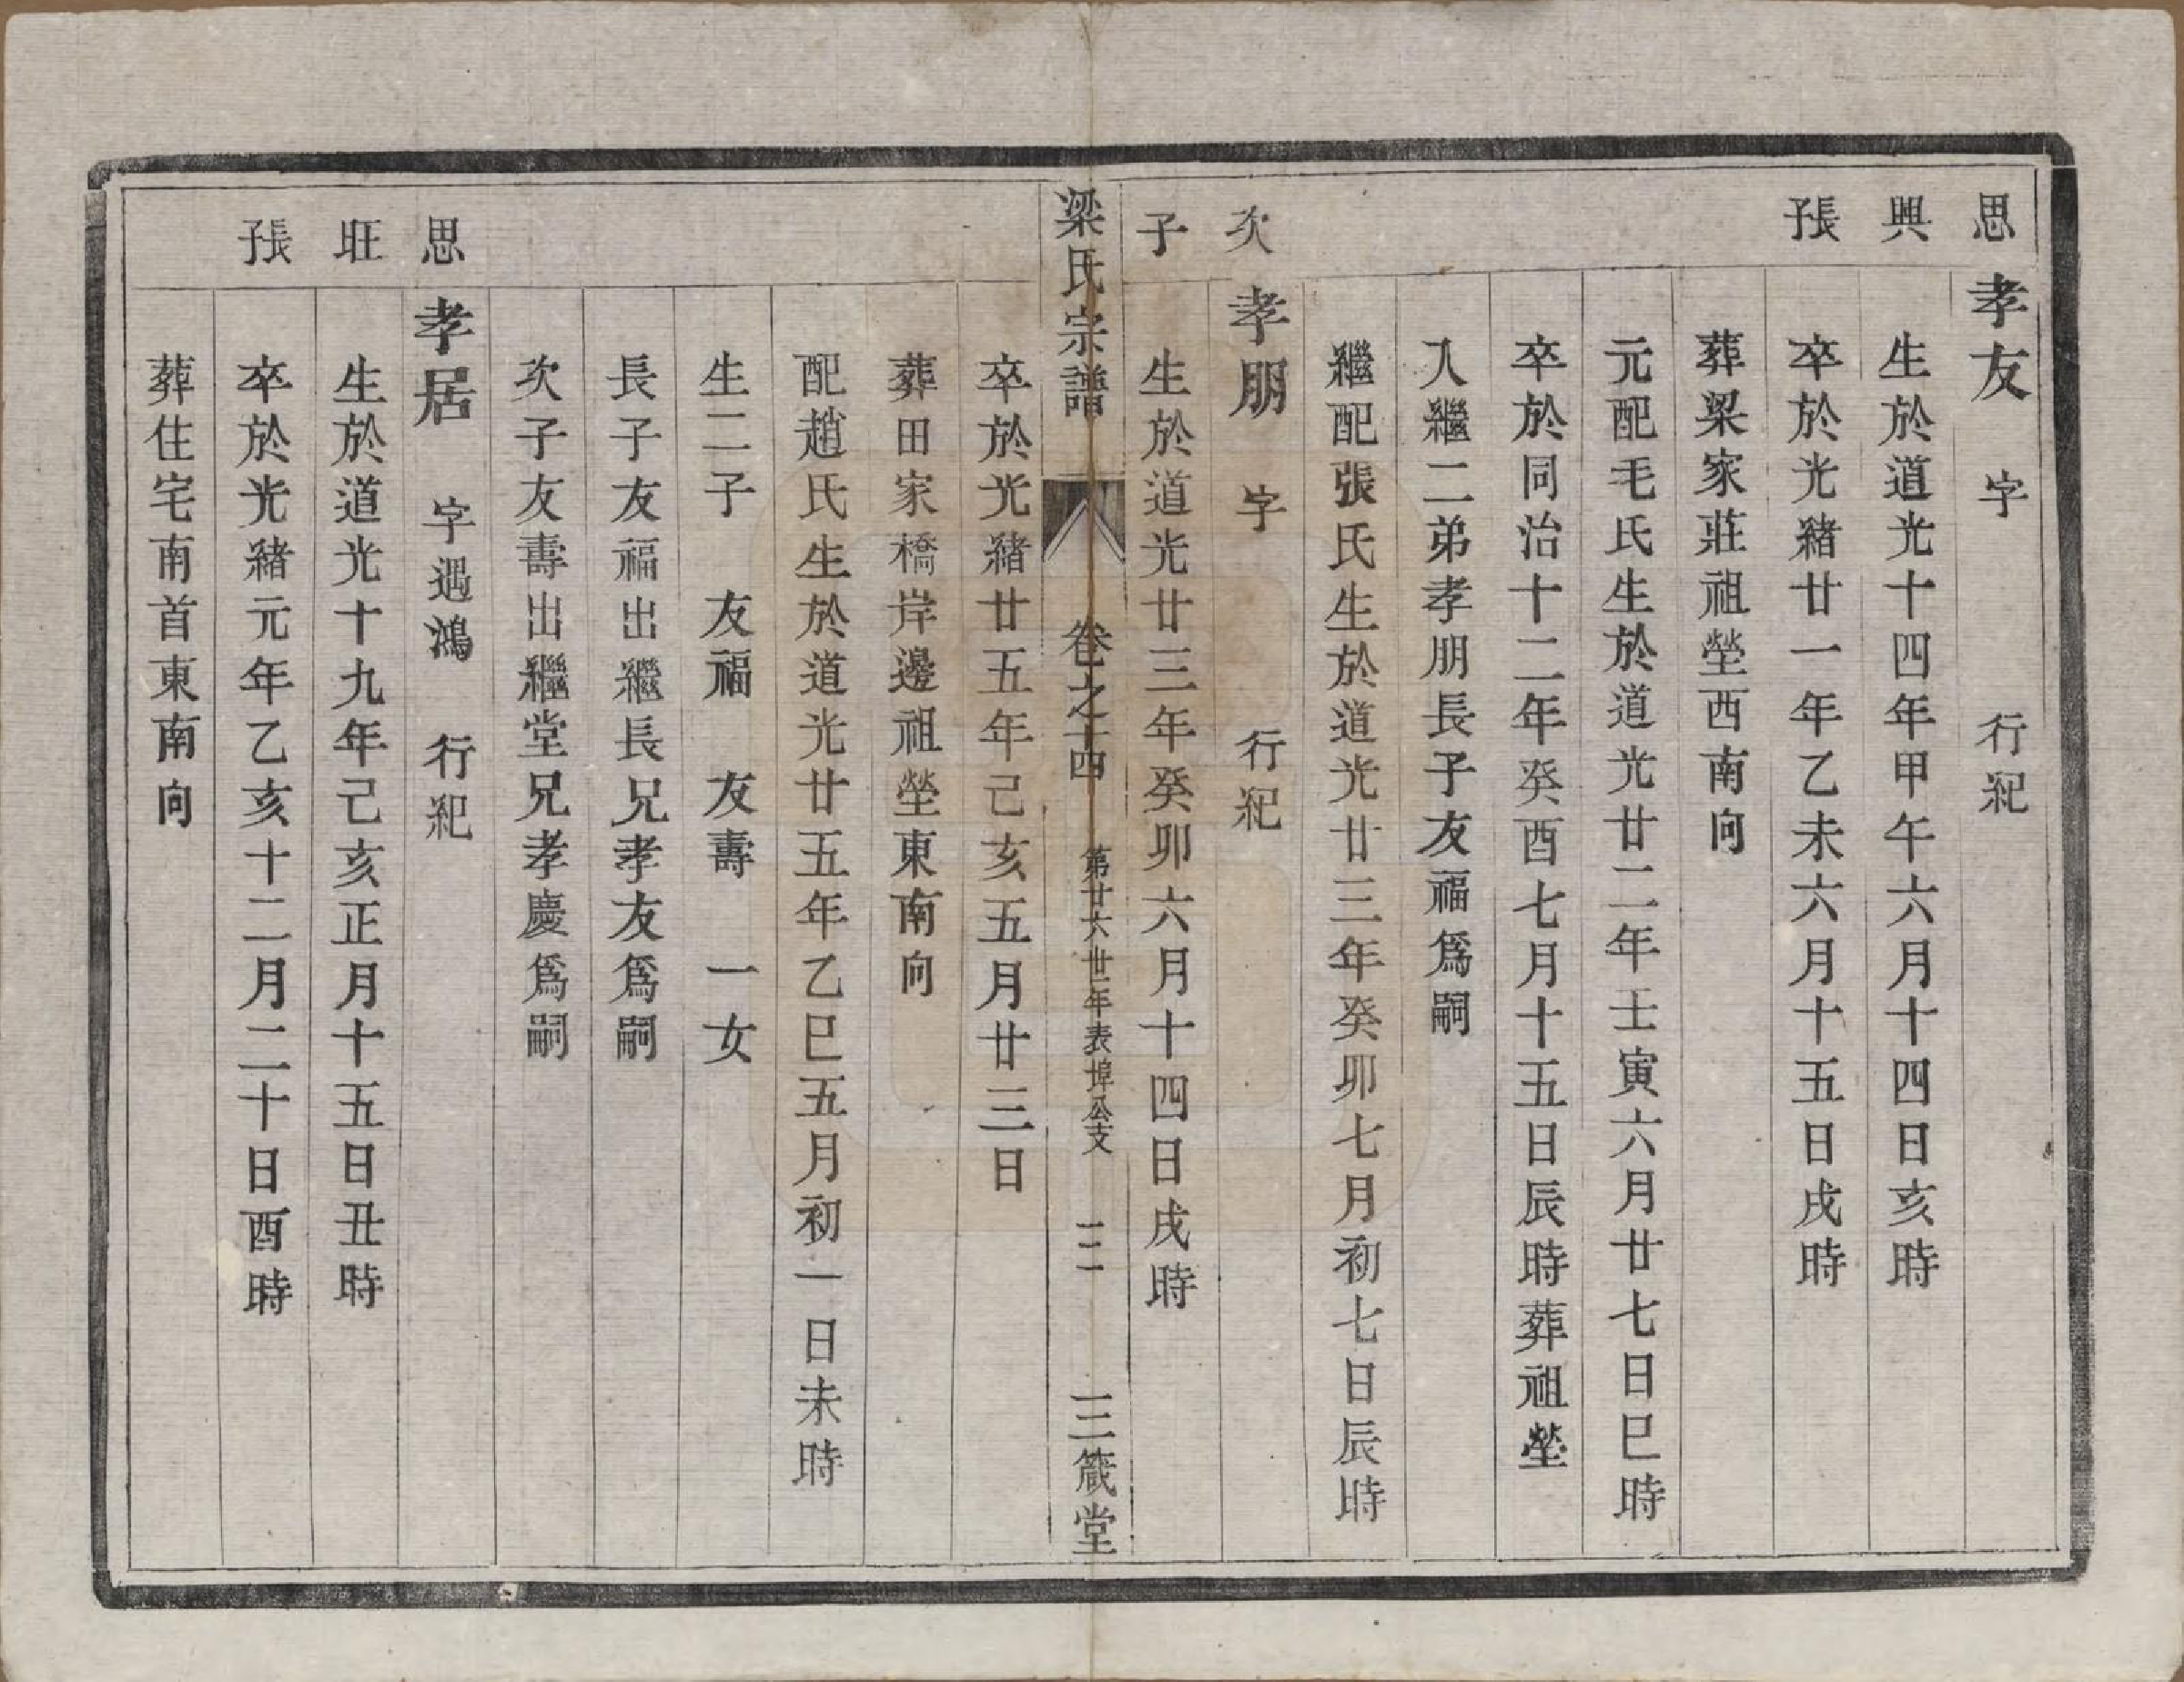 思 孝友 字 行紀
興 生於道光十四年甲午六月十四日亥時
張子 卒於光緒廿一年乙未六月十五日戌時
葬梁家莊祖塋西南向
元配毛氏生於道光廿二年壬寅六月廿七日巳時
卒於同治十二年癸酉七月十五日辰時葬祖塋
入繼二弟孝朋長子友福為嗣
繼配張氏生於道光廿三年癸卯七月初七日辰時
次 孝朋 字 行紀
子 生於道光廿三年癸卯六月十四日戌時
梁氏宗譜 卷之十四 第廿六世年表埠公支 二二 三箴堂
卒於光緒廿五年己亥五月廿三日
葬田家橋岸邊祖塋東南向
配趙氏生於道光廿五年乙巳五月初一日未時
生二子 友福 友壽 一女
長子友福出繼長兄孝友為嗣
次子友壽出繼堂兄孝慶為嗣
思 孝居 字遇鴻 行紀
旺 生於道光十九年己亥正月十五日丑時
張子 卒於光緒元年乙亥十二月二十日酉時
葬住宅南首東南向